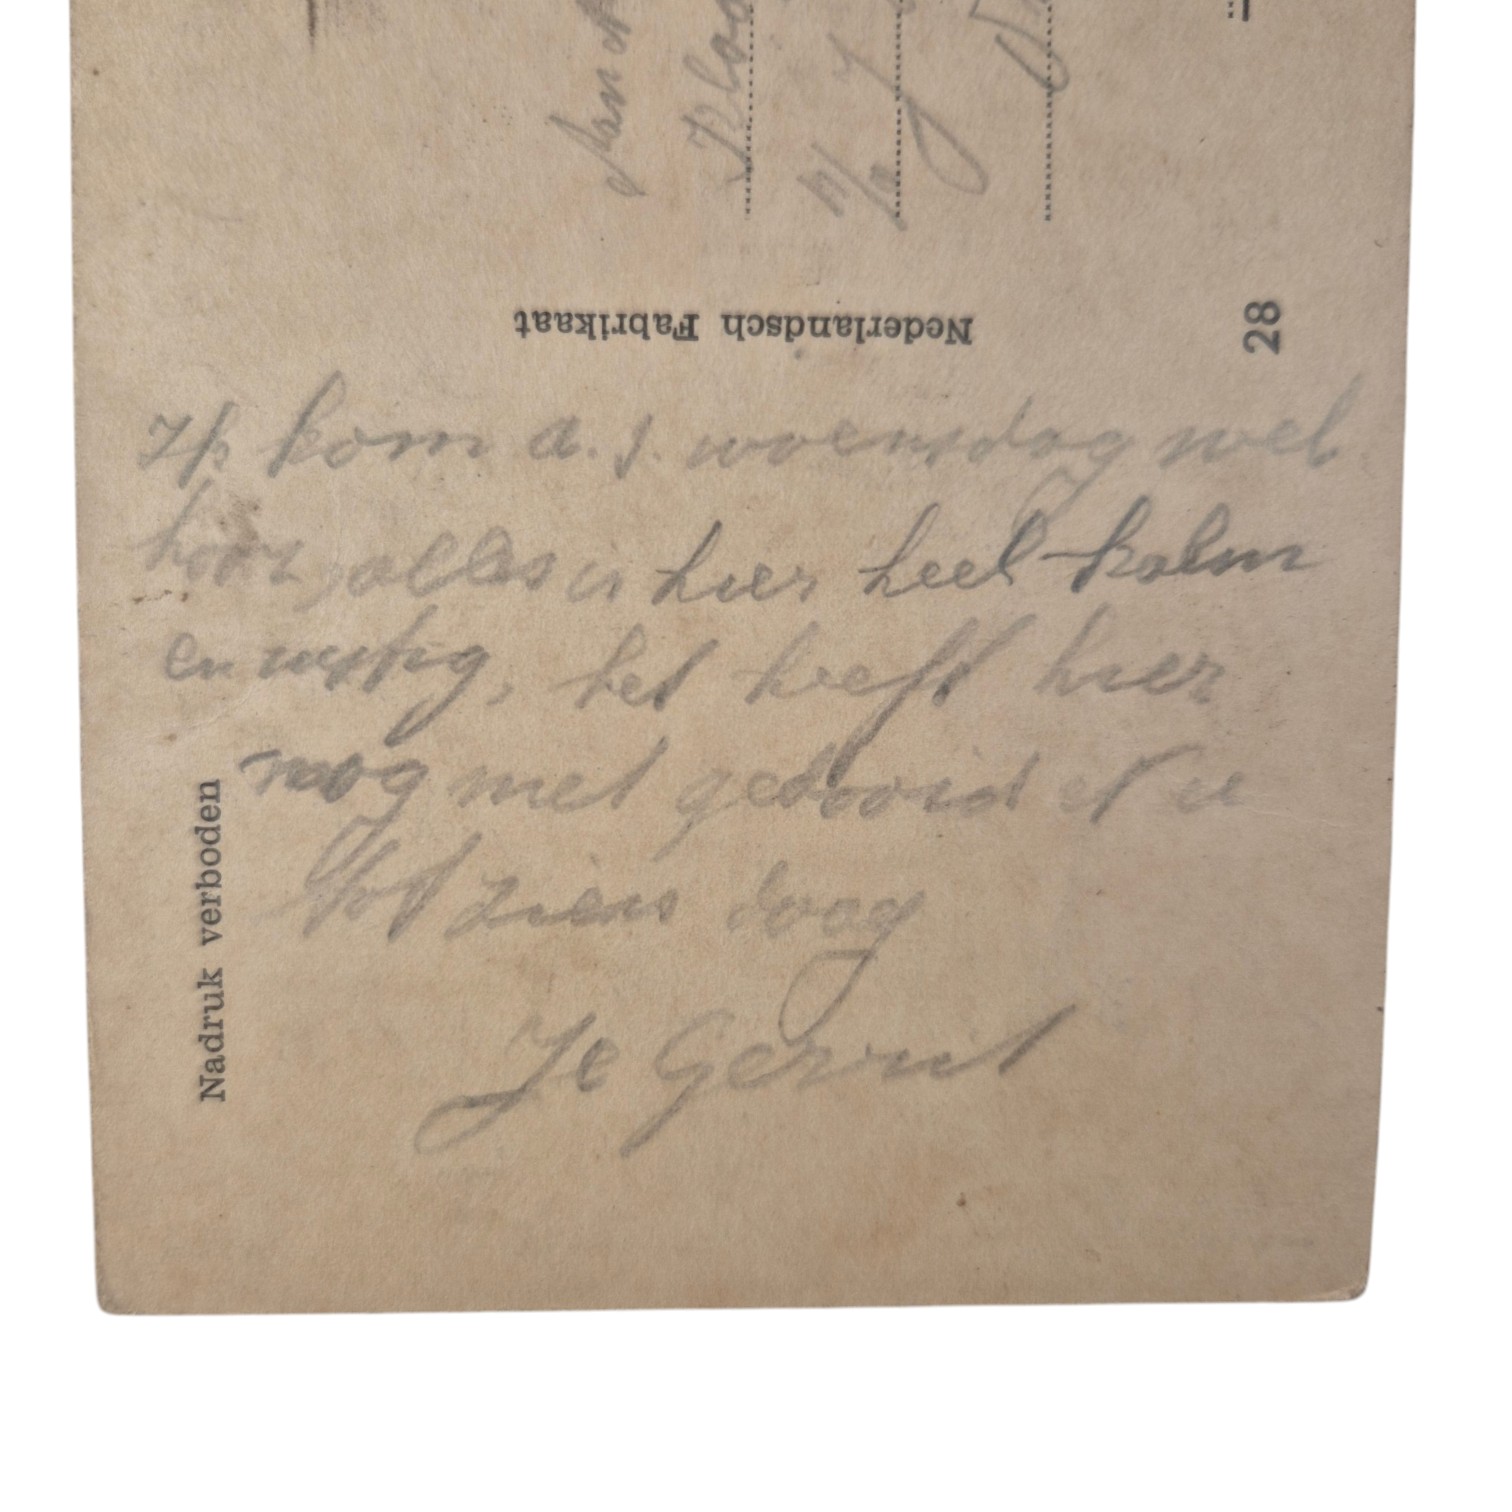 Nederlandsch Fabrikaat
28
Ik kom a.s. woensdag wel
hoor, alles is hier heel kalm
en rustig, het heeft hier
nog niet gedooid
Tot ziens daag
Je Gerrit
Nadruk verboden